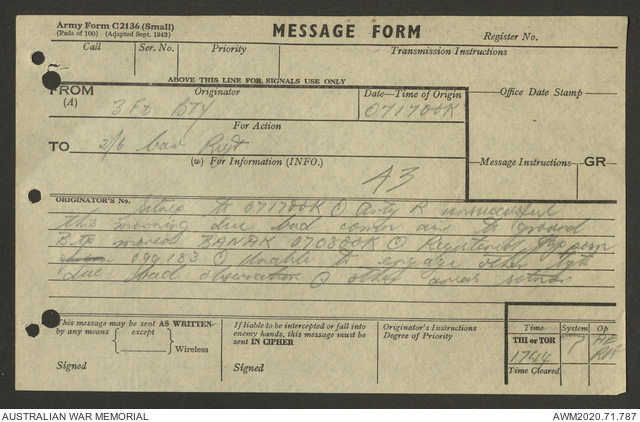 Army Form C2136 (Small)
(Pads of 100) (Adapted Sept. 1943)
MESSAGE FORM
Register No.
Call Ser. No. Priority Transmission Instructions
ABOVE THIS LINE FOR SIGNALS USE ONLY
FROM Originator Date—Time of Origin Office Date Stamp
(A) 3 Fd BTY 071700K
For Action
TO 2/6 Cav Regt
(W) For Information (INFO.) Message Instructions GR
A3
ORIGINATOR'S No.
Sitrep to 071700K Arty R unsuccessful
this morning due bad comn air to ground
moved BANAK 070800K Registered
099183 unable to engage other tgts
due bad observation other areas
This message may be sent AS WRITTEN
by any means except
Wireless
Signed
If liable to be intercepted or fall into
enemy hands, this message must be
sent IN CIPHER
Signed
Originator's Instructions
Degree of Priority
Time System Op
THI or TOR
1744
Time Cleared
AUSTRALIAN WAR MEMORIAL AWM2020.71.787